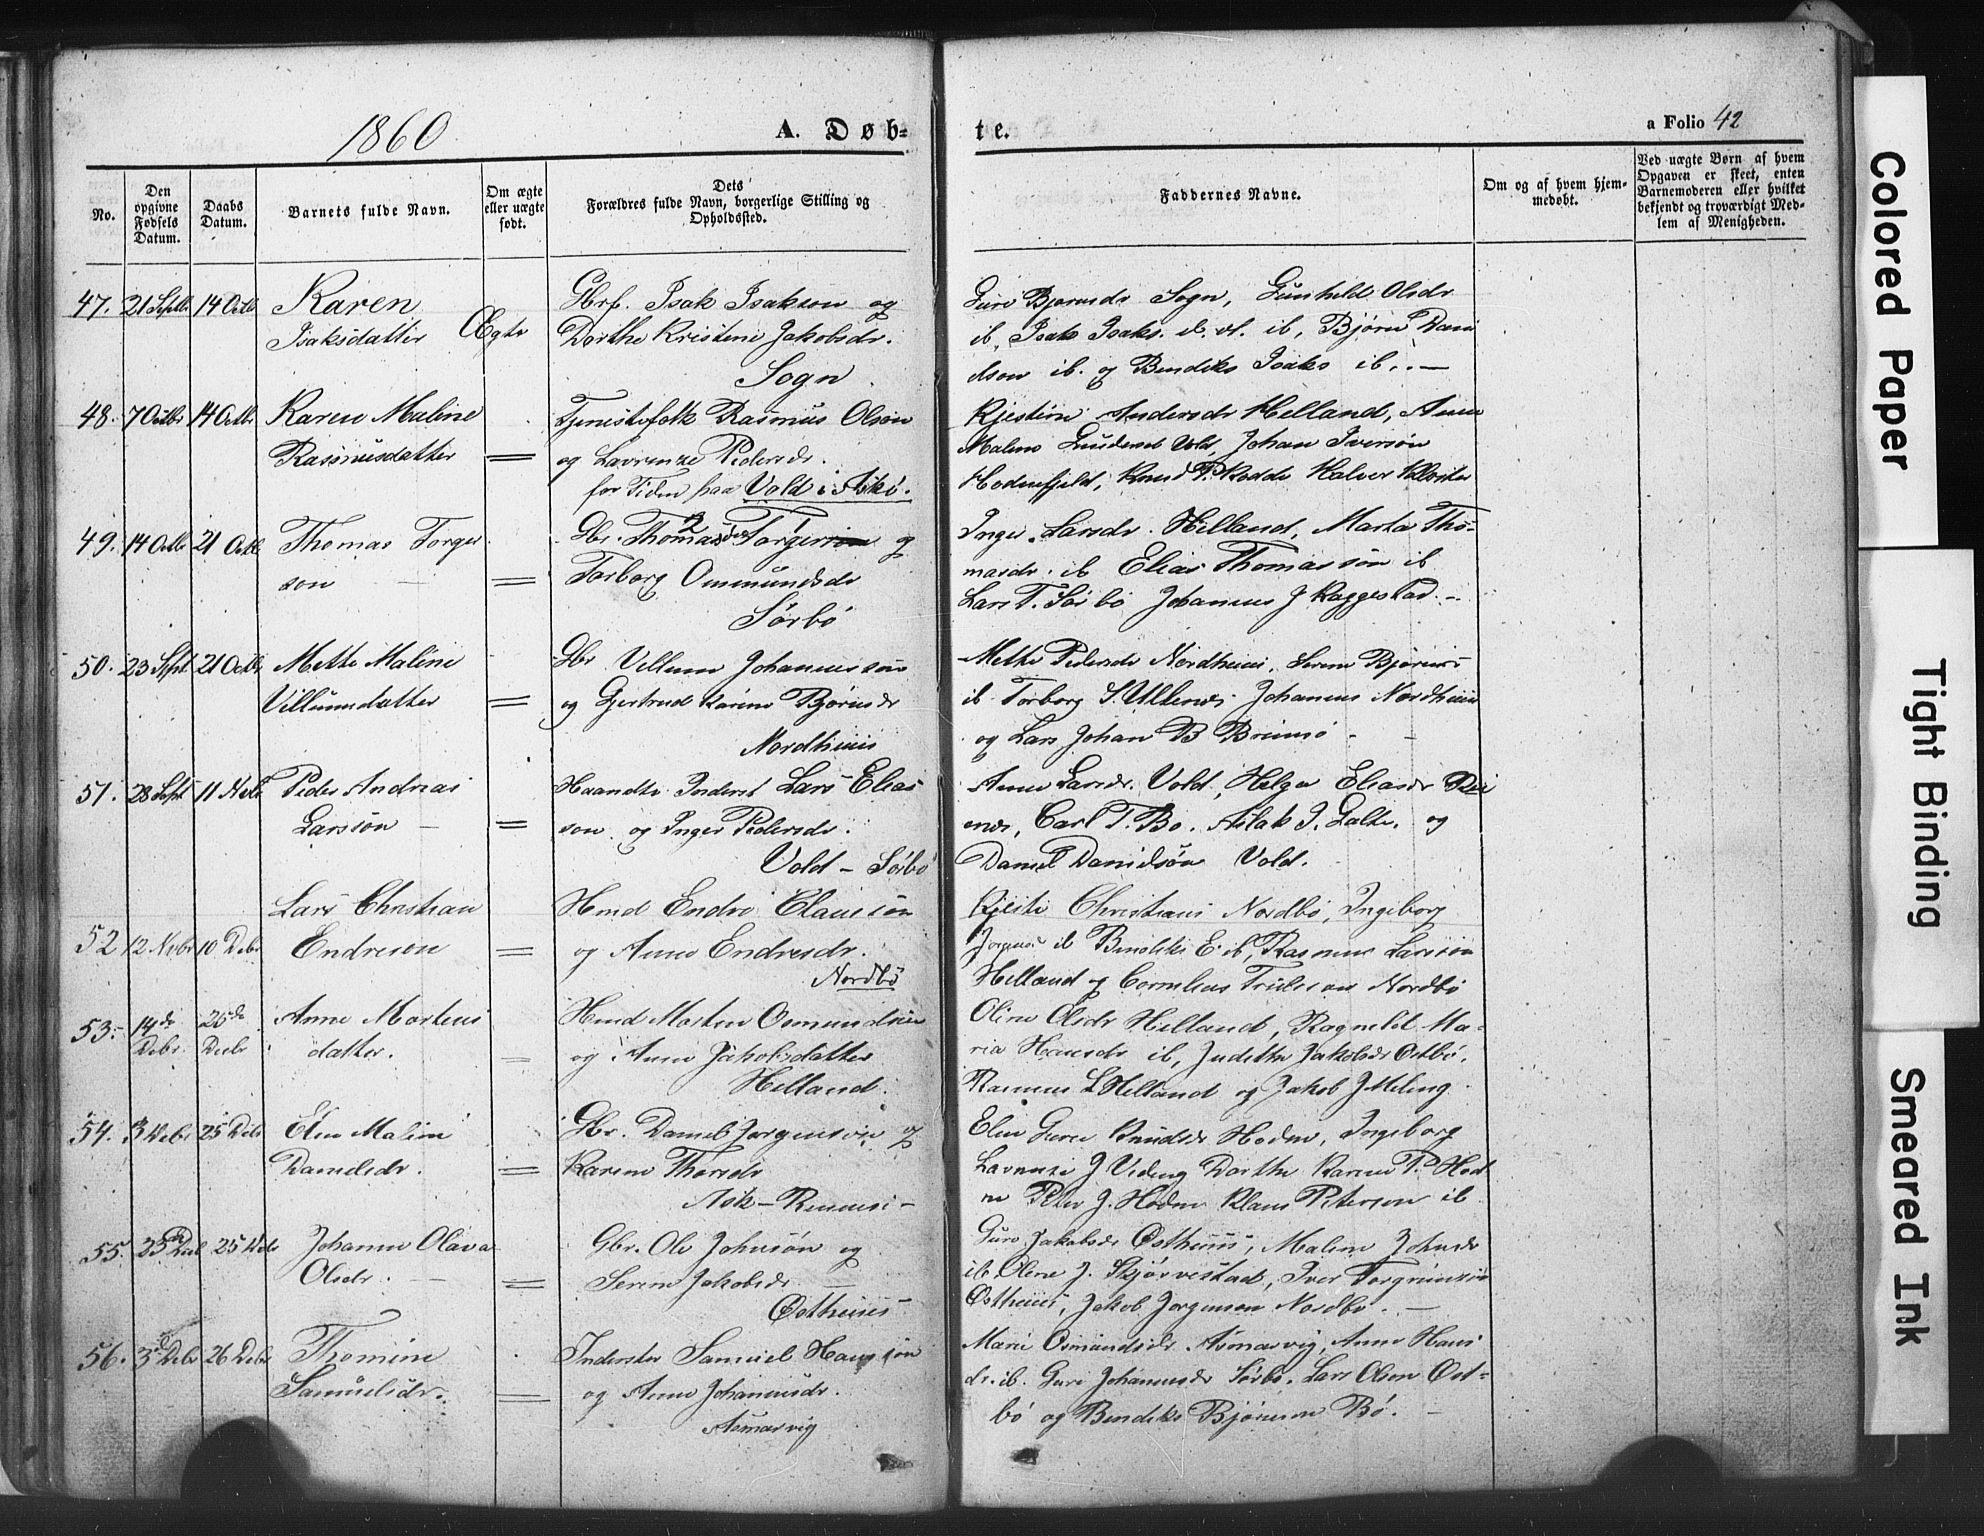 1860
A. Døb-
te.
a Folio 42
No.
Den opgivne Fødsels Datum.
Daabs Datum.
Barnets fulde Navn.
Om ægte eller uægte født.
Dets Forældres fulde Navn, borgerlige Stilling og Opholdssted.
Faddernes Navne.
Om og af hvem hjemmedøbt.
Ved uægte Børn af hvem Opgaven er skeet, enten Barnemoderen eller hvilket bekjendt og troværdigt Medlem af Menigheden.
47. 21 Septbr 14 Octbr Karen Gbrf. Isak Isakson og
Isaksdatter Ægte Dorthe Kristine Jakobsdr.
Sogn
Guro Bjørnsdr Sogn, Gunhild Olsdr
ib, Isak Isaks. ib, Bjørn Dani
elson ib. og Bendiks Isaks ib.
48. 7 Octbr 14 Octbr Karen Maline Tjenestefolk Rasmus Olson
Rasmusdatter = og Lavrenze Pedersdr.
for Tiden paa Vold i Askø.
Kjestine Andersdr Helland, Anne
Malene Vold, Johan Iversøn
Hodnefjeld, Knud P. Rodde Halvor Kloster
49. 14 Octbr 21 Octbr Thomas Torger Gbr. Thomas Torgersson og
son = Torborg Ommundsdr
Sørbø
Inger Larsdr. Helland, Marta Tho-
masdr. ib Elias Thomassøn ib
Lars T. Sørbø Johannes J Raggestad
50. 23 Sept 21 Octbr Mette Maline Gbr Villum Johannessøn
Villumsdatter = og Gjertrud Karine Bjørnsdr
Nordhuus
Mette Pedersdr Nordhuus, Serene Bjørns
ib Torborg S. Ullenes Johannes Nordhuus
og Lars Johan B Brimsø
51. 28 Sept 11 Nvbr Peder Andreas Haandv. Inderst Lars Elias
Larssøn = son og Inger Pedersdr.
Vold - Sørbø
Anne Larsdr. Vold, Helga Eliasdr Rei
enes, Carl T. Bø. Aslak J. Galte, og
Daniel Danielsøn Vold.
Lars Christian Hmd Endre Claussøn
52 12 Nvbr 10 Debr Endreson = og Anne Endresdr.
Nordbø
Kjesti Christians Nordbø, Ingeborg
Jørgens ib Bendiks E. ib, Rasmus Larssøn
Helland og Cornelius Nordbø
53. 14de Debr. 26de Debr Anne Mortens Hmd Morten Osmundsøn
datter. = og Anne Jakobsdatter
Helland.
Oline Olsdr Helland, Ragnild Ma-
ria Hansdr ib, Judithe Jakobsdr Østbø,
Rasmus L Helland og Jakob J Meling
54. 3 Debr 25 Debr Elen Maline Gbr. Daniel Jørgensøn og
Danielsdr. = Karen Thorsdr
Ask - Rennesø -
Elen Guro Knudsdr Hodne, Ingeborg
Lavrenze J Viding Dorthe Karine P. Hod
ne Peder J. Hodne Klaus Peterson ib
55. 23de Debr 25 Debr Johanne Olava Gbr. Ole Johnsøn og
Olsdr. = Serene Jakobsdr
Østhuus
Guro Jakobsdr Østhuus, Malene Johnsdr
ib. Olene J. Skjørvestad, Iver Torgrimsøn
Østhuus, Jakob Jørgenson Nordbø.
56. 3de Debr 26 Debr Thomine Inderster Samuel Hanssøn
Samuelsdr. = og Anne Johannesdr.
Asmarvig
Marie Osmundsdr. Asmarvig, Anne Hans
dr. ib. Guro Johannesdr Sørbø. Lars Olson Øst-
bø og Bendiks Bjørnson Bø.
Colored Paper
Tight Binding
Smeared Ink